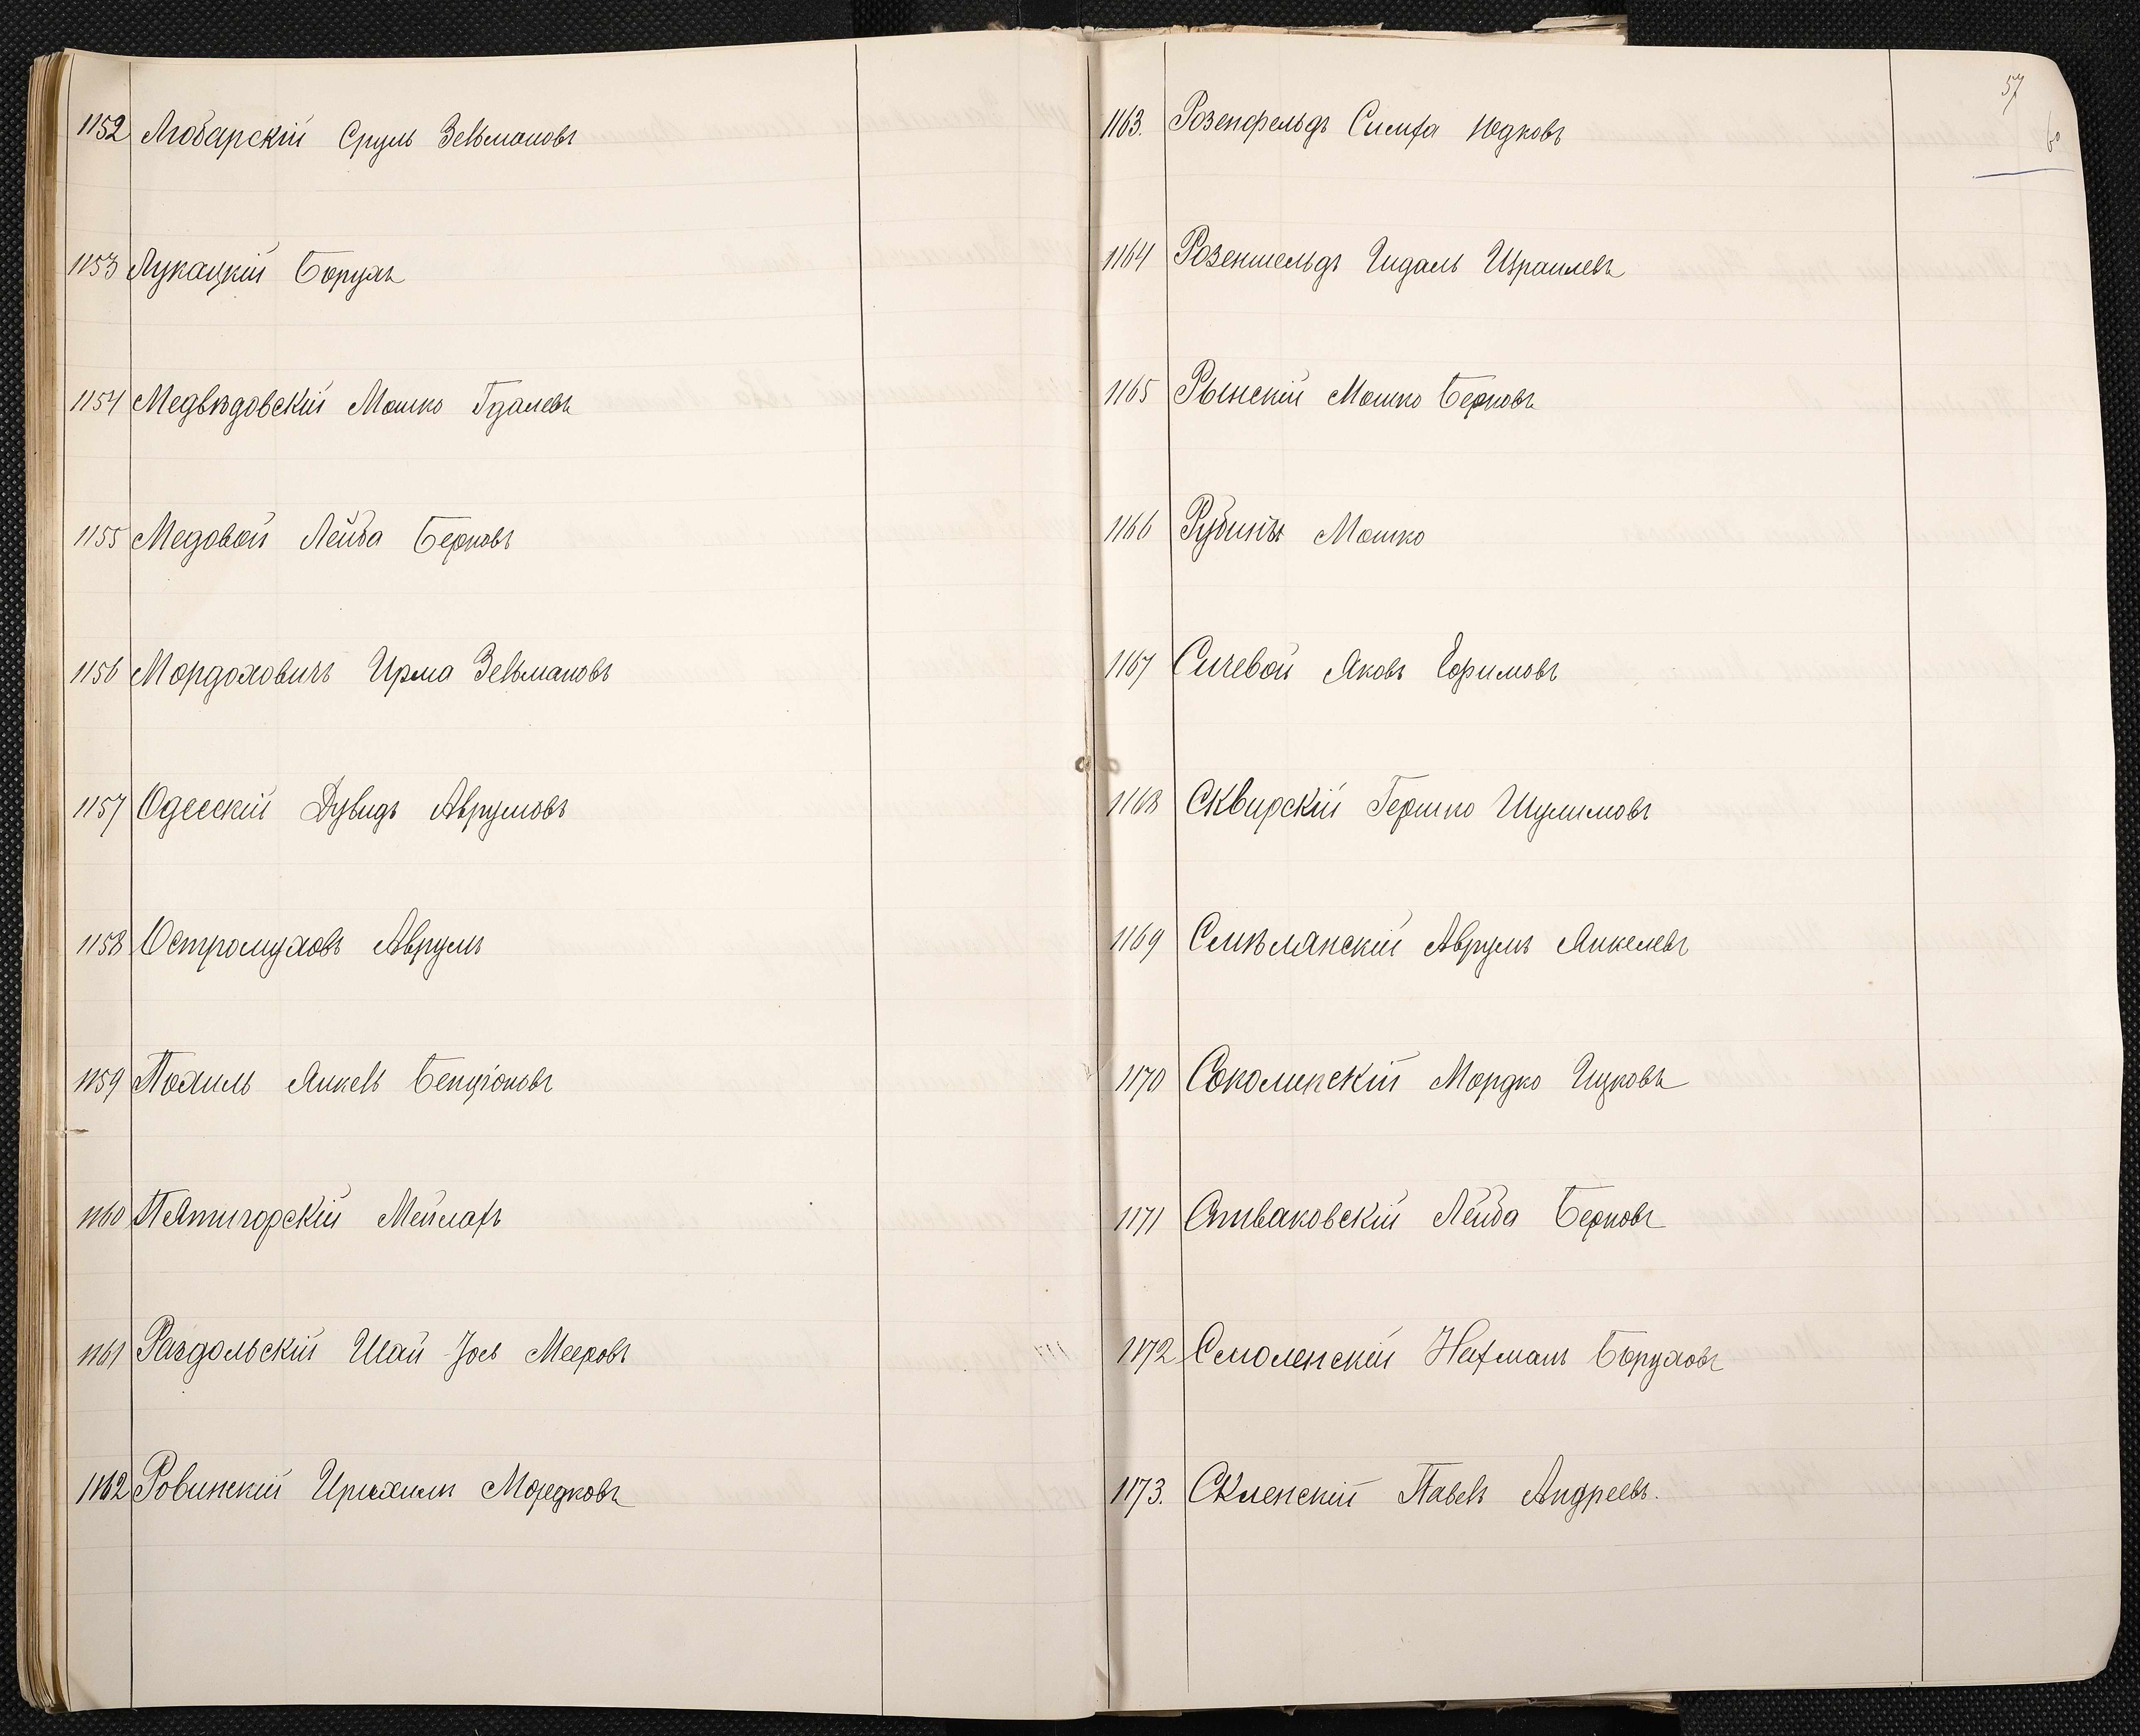 1152 Любарскій Сруль Зельмановъ
1153 Лукацкій Борухъ
1154 Медвѣдовскій Мошко Гдалевъ
1155 Медовой Лейба Берковъ
1156 Мордоховичъ Ирма Зельмановъ
1157 Одесскій Дувидъ Аврумовъ
1158 Остромуховъ Аврумъ
1159 Похиль Янкель Бенціоновъ
1160 Пятигорскій Мейлахъ
1161 Раздольскій Шай-Іось Мееровъ
1162 Ровинскій Ирихимъ Мордковъ
57
60
1163. Розенфельдъ Симха Юдковъ
1164 Розеншельдъ Гидаль Израилевъ
1165 Рынскій Мошко Берковъ
1166 Рубинъ Мошко
1167 Сичевой Яковъ Ефимовъ
1168 Сквирскій Гершко Шулимовъ
1169 Смѣлянскій Аврумъ Янкелевъ
1170 Соколинскій Мордко Ицковъ
1171 Спиваковскій Лейба Берковъ
1172 Смоленскій Нахманъ Боруховъ
1173. Скленскій Павелъ Андреевъ.